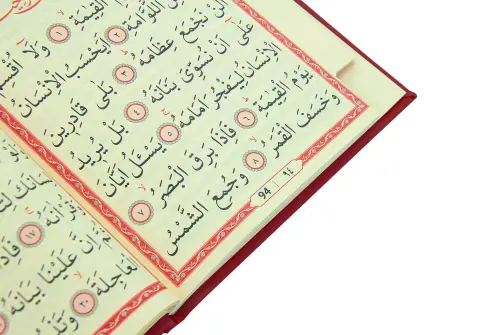 الْقِيٰمَةِ ١ وَلَا أُقْسِمُ
اللَّوَّامَةِ ٢ اَيَحْسَبُ الْاِنْسَانُ
نَجْمَعَ عِظَامَهُ ٣ بَلٰى قَادِرِينَ
عَلٰى اَنْ نُسَوِّىَ بَنَانَهُ ٤ بَلْ يُرِيدُ
الْاِنْسَانُ لِيَفْجُرَ اَمَامَهُ ٥ يَسْـَٔلُ اَيَّانَ
يَوْمُ الْقِيٰمَةِ ٦ فَاِذَا بَرِقَ الْبَصَرُ ٧
وَخَسَفَ الْقَمَرُ ٨ وَجُمِعَ الشَّمْسُ
94 ٩٤
١٧
اِنَّ عَلَيْنَا بَيَانَهُ
الْعَاجِلَةَ ٢٠